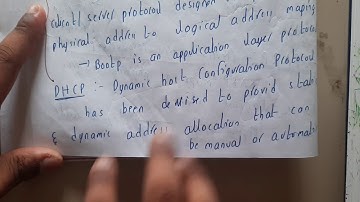 client/server protocol designed
physical address to logical address maping
→ Bootp is an application layer protocol
DHCP :- Dynamic host Configuration Protocol
has been devised to provid stati
& dynamic address allocation that can
be manual or automati